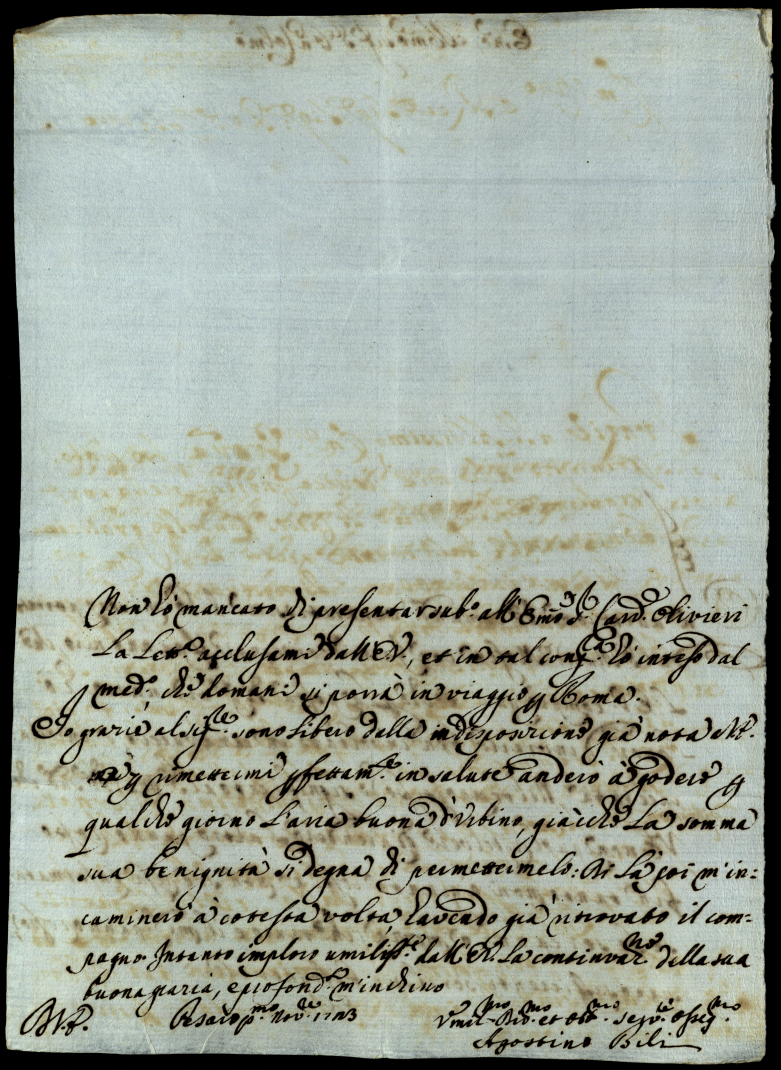 Non hò mancato di presentar sub.º all'Em̃o S.r Card. Olivieri
La Lett.ª acclusami dall'E.V., et in tal cong.ra hò inteso dal
med.º che domani si porrà in viaggio p Roma.
Io grazie al Sig.re sono libero dalla indisposizione già nota
p rimettermi pfettam.te in salute anderò à godere p
qualche giorno L'aria buona d'Urbino, giàcche La somma
sua benignità si degna di permettermelo: Di Là poi m'in-
caminerò à cotesta volta, havendo già ritrovato il com-
pagno. Intanto imploro umiliss.te dall'E.V. La continuaz.ne della sua
buona grazia, e profond.te m'inchino
Pesaro p.mo Nov.re 1743
Umil.mo Div.mo et Obb.mo Serv.re Osseq.mo
Agostino Bili